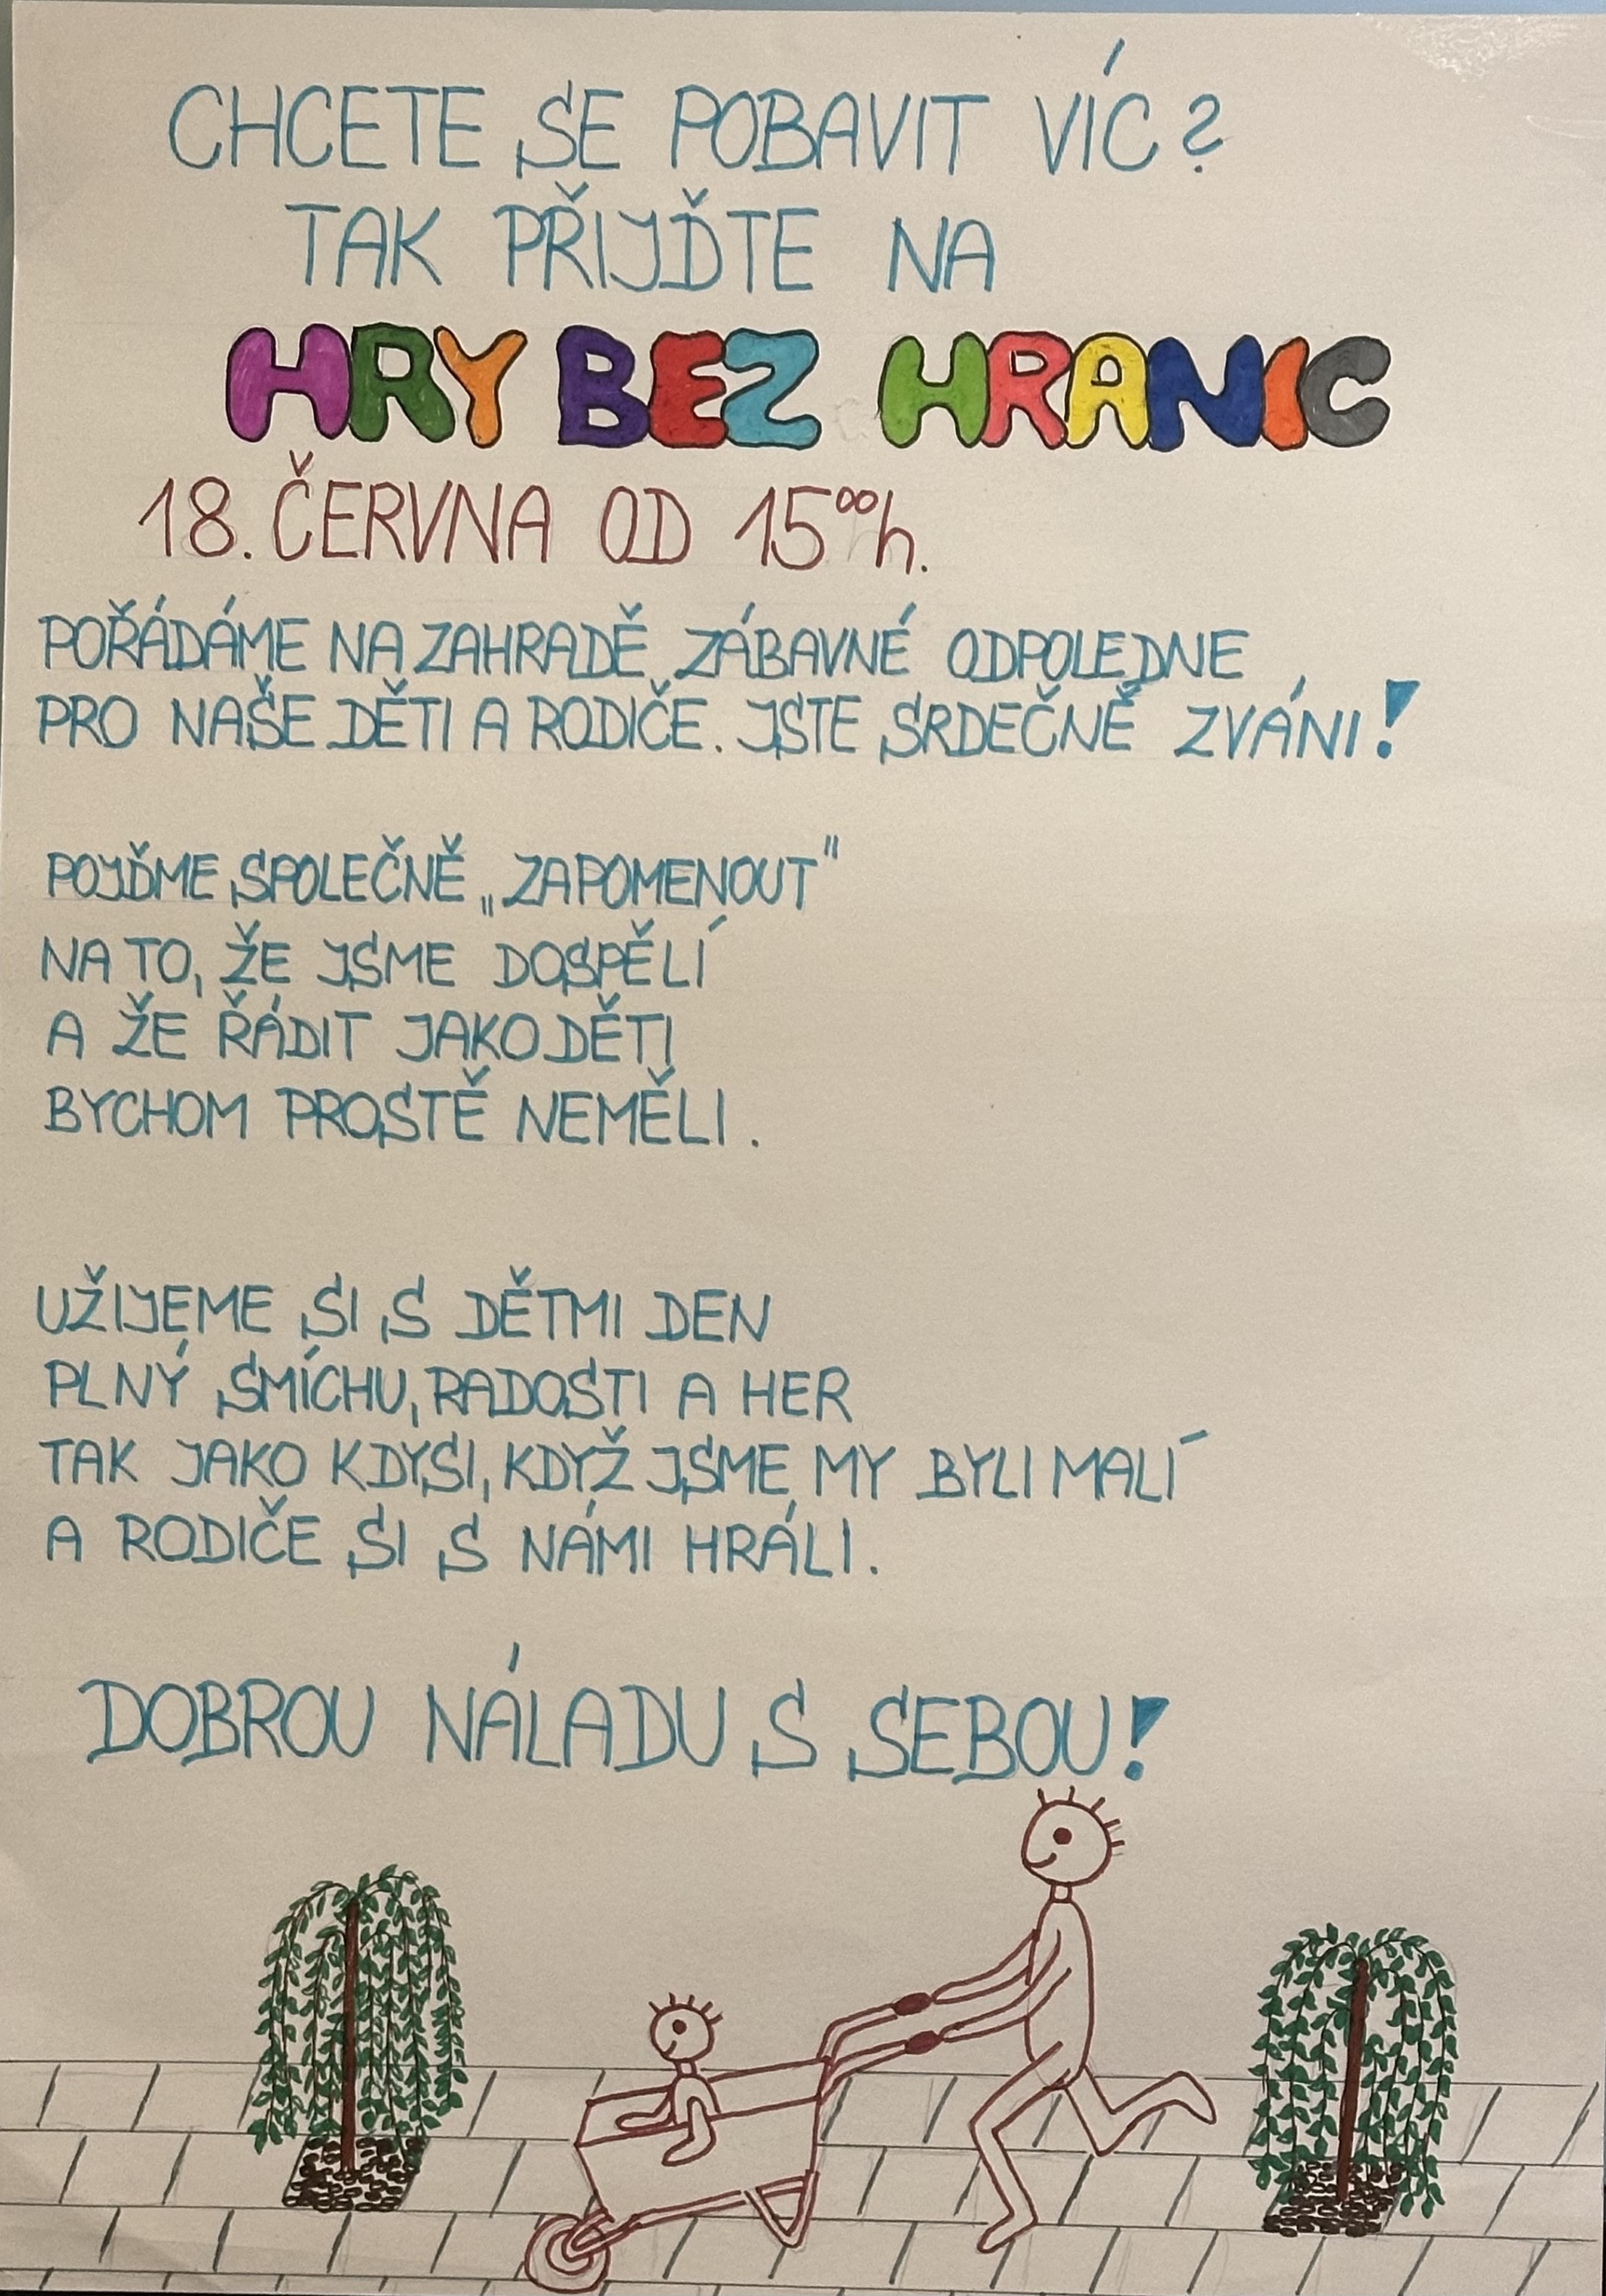 CHCETE SE POBAVIT VÍC?
TAK PŘIJĎTE NA
HRY BEZ HRANIC
18. ČERVNA OD 15⁰⁰h.
POŘÁDÁME NA ZAHRADĚ ZÁBAVNÉ ODPOLEDNE
PRO NAŠE DĚTI A RODIČE. JSTE SRDEČNĚ ZVÁNI!
POJĎME SPOLEČNĚ „ZAPOMENOUT"
NA TO, ŽE JSME DOSPĚLÍ
A ŽE ŘÁDIT JAKO DĚTI
BYCHOM PROSTĚ NEMĚLI.
UŽIJEME SI S DĚTMI DEN
PLNÝ SMÍCHU, RADOSTI A HER
TAK JAKO KDYSI, KDYŽ JSME MY BYLI MALÍ
A RODIČE SI S NÁMI HRÁLI.
DOBROU NÁLADU S SEBOU!